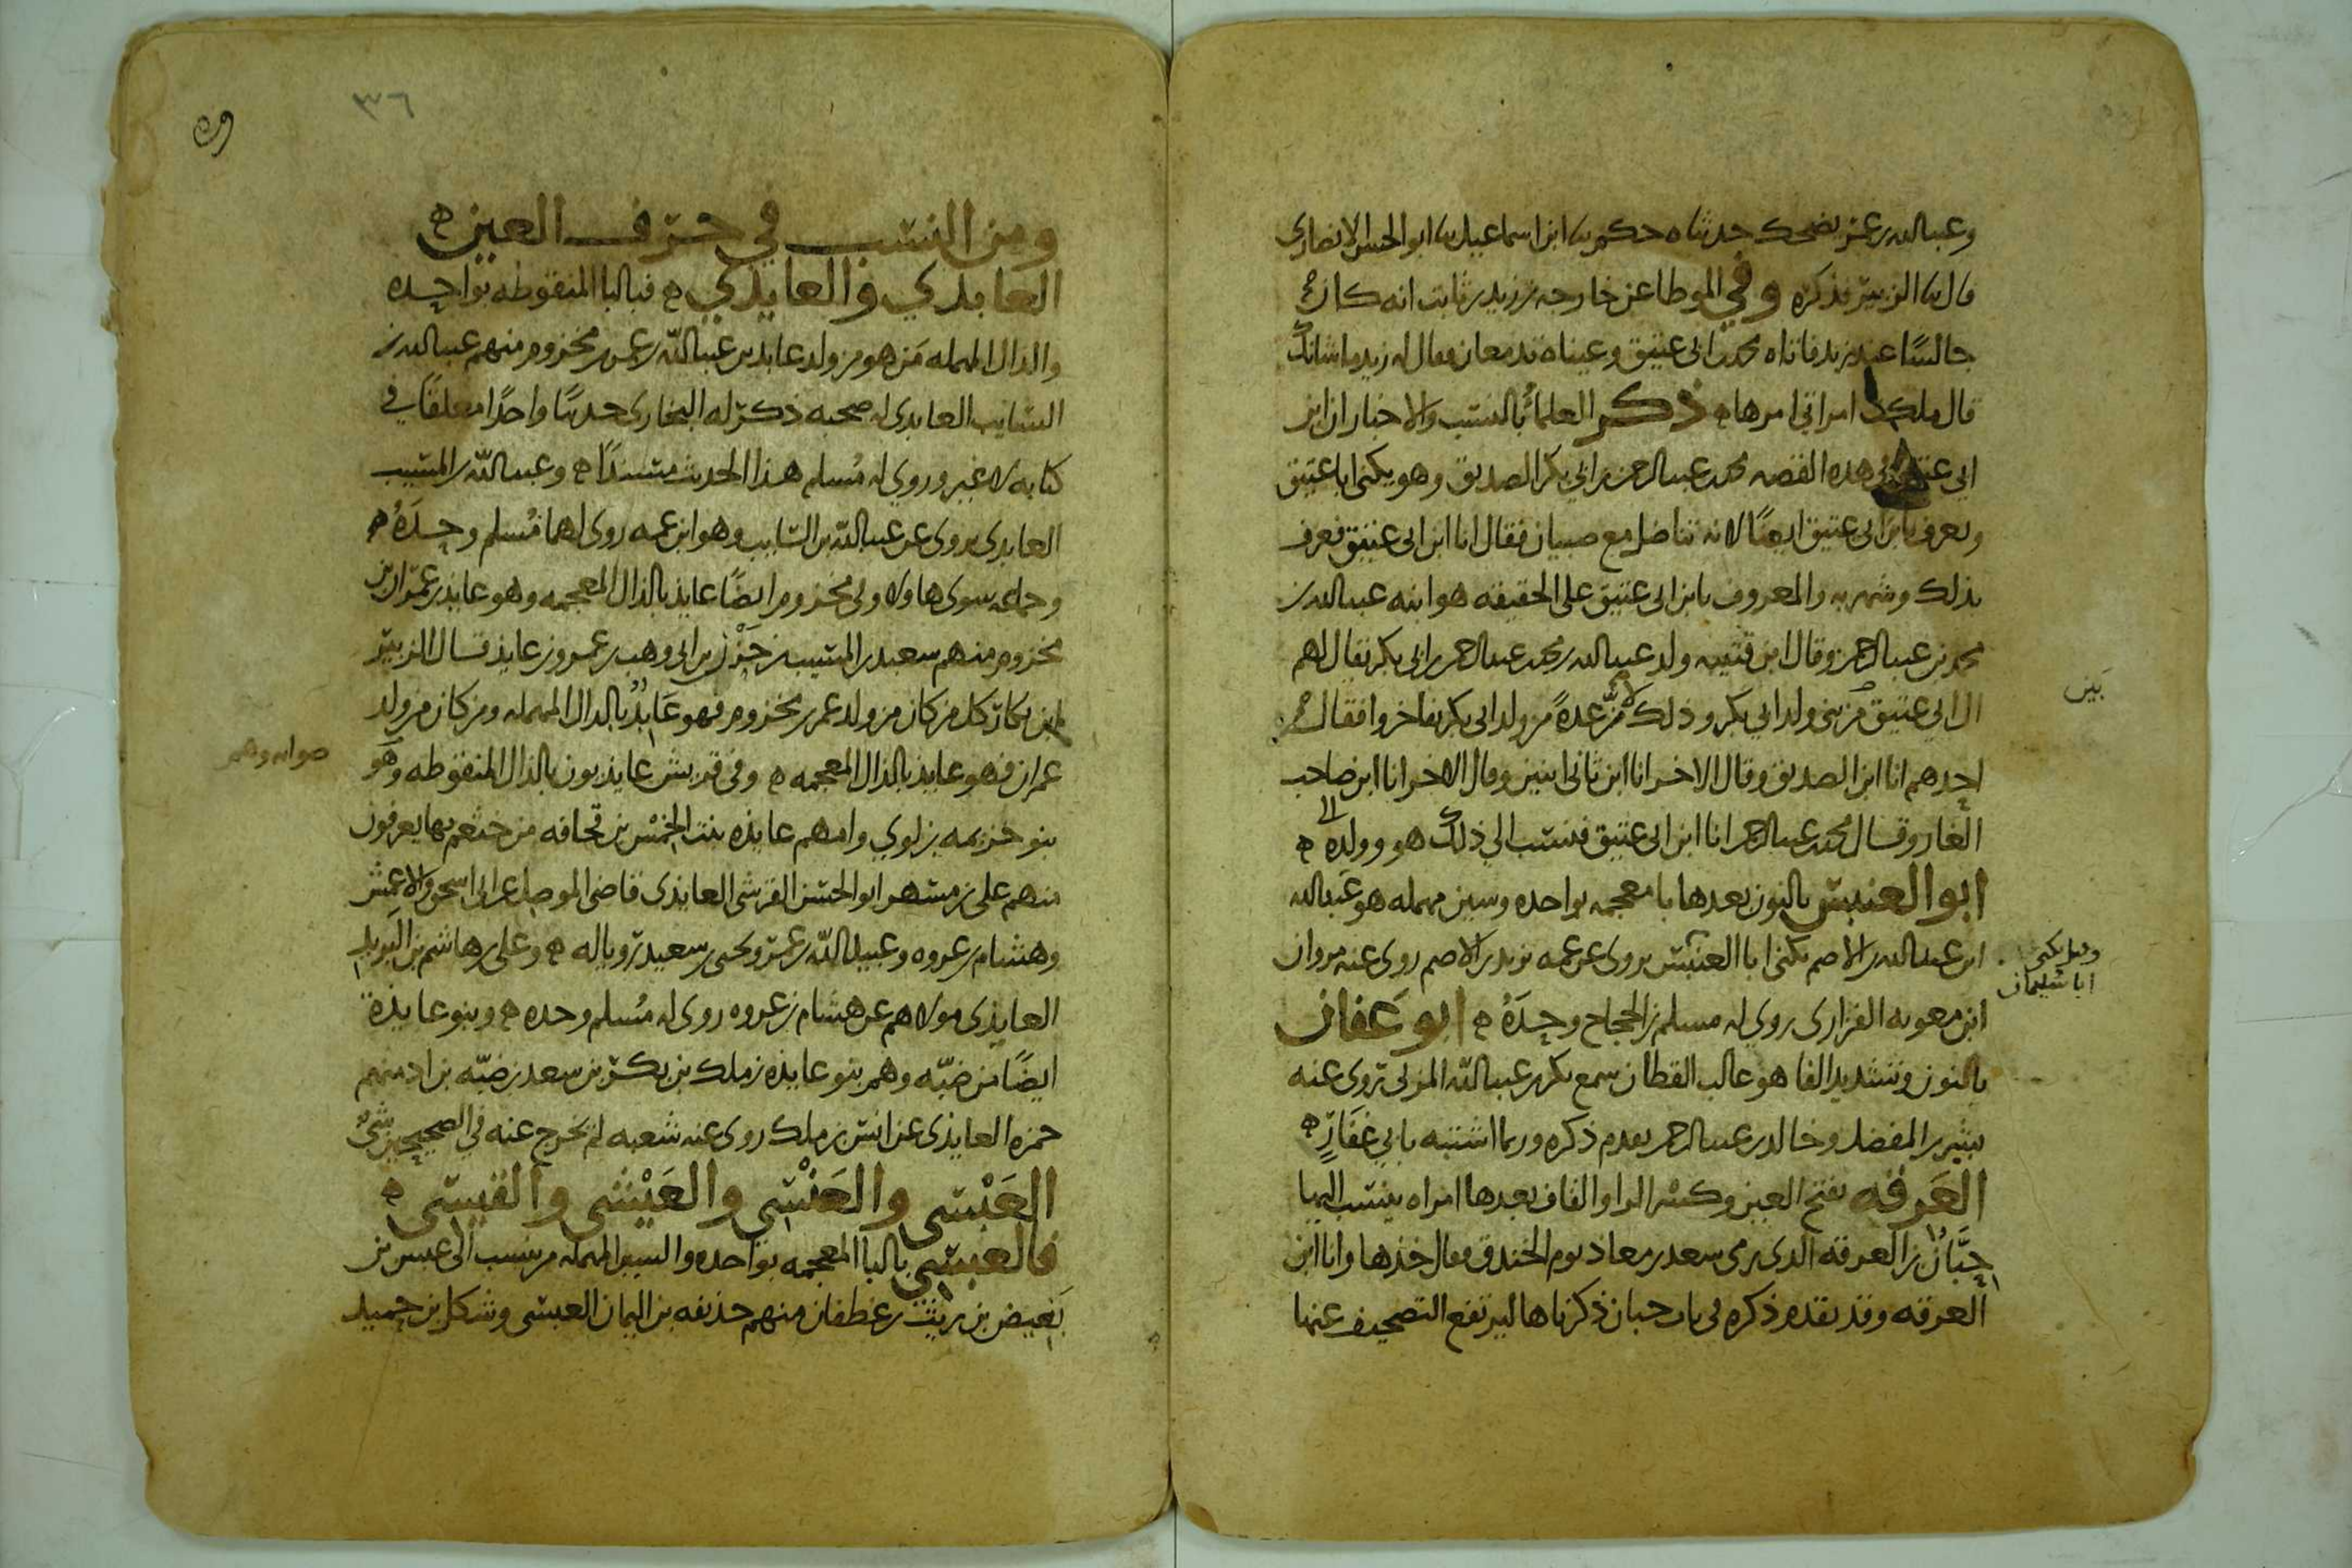 وعبدالله بن عمر يضحك حدثناه حكم نا ابن اسماعيل نا ابو الحسن الانصاري
قال نا الزبير فذكره وفي الموطا عن خارجه بن زيد بن ثابت انه كان
جالسًا عند زيد فاتاه محمد بن ابي عتيق وعيناه تدمعان فقال له زيد ما شانك
قال ملكت امراتي امرها ه ذكر العلماءُ بالنسب والاخبار ان ابن
ابي عتيق في هذه القصه محمد بن عبد الرحمن بن ابي بكر الصديق وهو يكنى ابا عتيق
ويعرف بابن ابي عتيق ايضًا لانه تناضل مع صبيان فقال انا ابن ابي عتيق فعرف
بذلك وشهر به والمعروف بابن ابي عتيق على الحقيقه هو ابنه عبد الله بن
محمد بن عبد الرحمن وقال ابن قتيبه ولد عبد الله بن محمد بن عبد الرحمن بن ابي بكر يقال لهم
ال ابي عتيق من بني ولد ابي بكر وذلك لان عدةً من ولد ابي بكر تفاخروا فقال
بين
احدهم انا ابن الصديق وقال الاخر انا ابن ثاني اثنين وقال الاخر انا ابن صاحب
الغار وقال محمد بن عبد الرحمن انا ابن ابي عتيق فنسب الى ذلك هو وولده ه
ابو العنبس بالنون بعدها با معجمه بواحده وسين مهمله هو عبد الله
ابن عبد الله بن الاصم يكنى ابا العنبس يروى عن عمه يزيد بن الاصم روى عنه مروان
وقيل يكنى
ابا سليمان
ابن معويه الفزارى روي له مسلم بن الحجاج وحدَهُ ه ابو عَفان
بالنون وتشديد الفا هو غالب القطان سمع بكر بن عبد الله المزني تروى عنه
بشر بن المفضل وخالد بن عبد الرحمن تقدم ذكره وربما اشتبه بابي غِفَارٍ ه
العَرِقه بفتح العين وكسر الرا والقاف بعدها امراه ينسب اليها
حِبَّانُ بن العرقه الذي رمى سعد بن معاذ يوم الخندق وقال خذها وانا ابن
العرقه وقد تقدم ذكره في باب حبان ذكرناها ليرتفع التصحيف عنها
٣٦
ومن النسب في حرف العين ه
العابدي والعايذي ه فبالبا المنقوطه بواحده
والدال المهمله مَن هو من ولد عابد بن عبد الله بن عمر بن مخزوم منهم عبد الله بن
السايب العابدى له صحبه ذكر له البخارى حديثًا واحدًا معلقًا في
كتابه لا غير وروي له مُسلم هذا الحديث مسندًا ه وعبد الله بن المسيب
العابدى يروى عن عبد الله بن السايب وهو ابن عمه روى لهما مُسلم وحدَهُ ه
وجماعه سوى هاولا وفي مخزوم ايضًا عايذ بالذال المعجمه وهو عايذ بن عمران بن
مخزوم منهم سعيد بن المسيب بن حَزْن بن ابي وهب بن عمرو بن عايذ قال الزبير
ابن بكار كل من كان من ولد عمر بن مخزوم فهو عَابدٌ بالدال المهمله ومن كان من ولد
عمران فهو عايذ بالذال المعجمه ه وفي قريش عايذيون بالذال المنقوطه وهو
صوابه وهم
بنو خزيمه بن لوي وامهم عايذه بنت الخِمْس بن قحافه من خثعم بها يعرفون
منهم على بن مسهر ابو الحسن القرشي العايذى قاضي الموصل عن ابي اسحق والاعمش
وهشام بن عروه وعبيد الله بن عمر ويحيى بن سعيد رويا له ه وعلى بن هاشم بن البَريد
العايذي مولاهم عن هشام بن عروه روى له مُسلم وحده ه وبنو عايذة
ايضًا من ضبّه وهم بنو عايذه بن ملك بن بكر بن سعد بن ضبّه بن اد منهم
حمزه العايذى عن انس بن ملك روى عنه شعبه لم يخرج عنه في الصحيحين شيٌ
العَبْسي والعَنْسي والعَيْشي والقيسي ه
فالعبسي بالبا المعجمه بواحده والسين المهمله من ينسب الى عبس بن
بَغيض بن ريث بن غطفان منهم حذيفه بن اليمان العبسي وشكل بن حميد